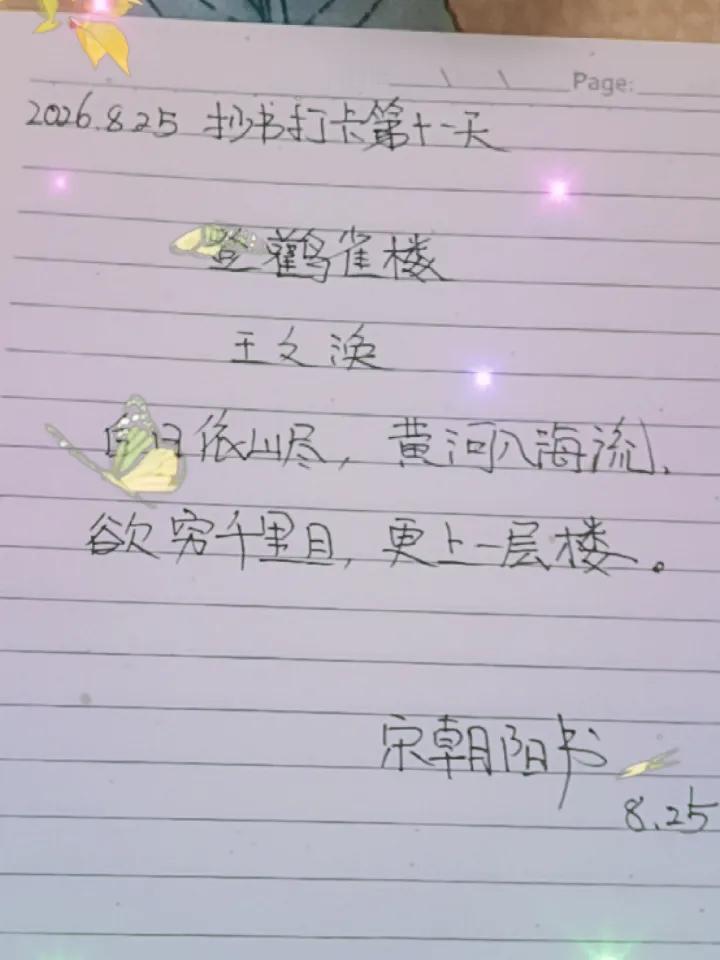 Page:
2026.8.25 抄书打卡第十一天
登鹳雀楼
王之涣
白日依山尽，黄河入海流，
欲穷千里目，更上一层楼。
宋朝阳书
8.25